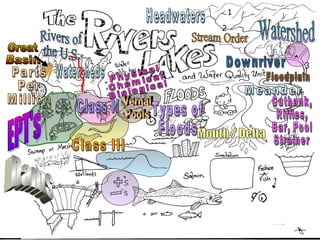 The
Rivers
Lakes
and Water Quality Unit
Headwaters
Stream Order
1
2
Watershed
Great
Basin
Rivers of
the U.S.
Watersheds
Parts
Per
Million
Water
Quality
Physical
Chemical
Biological
Downriver
Floodplain
Meander
Cutbank,
Riffles,
Bar, Pool
Strainer
Class V
Vernal
Pools
FLOODS
Types of
Floods
Mouth / Delta
EPT's
Class III
Swamp or Marsh
Wetlands
Dams
+'s
-'s
Salmon
Fish